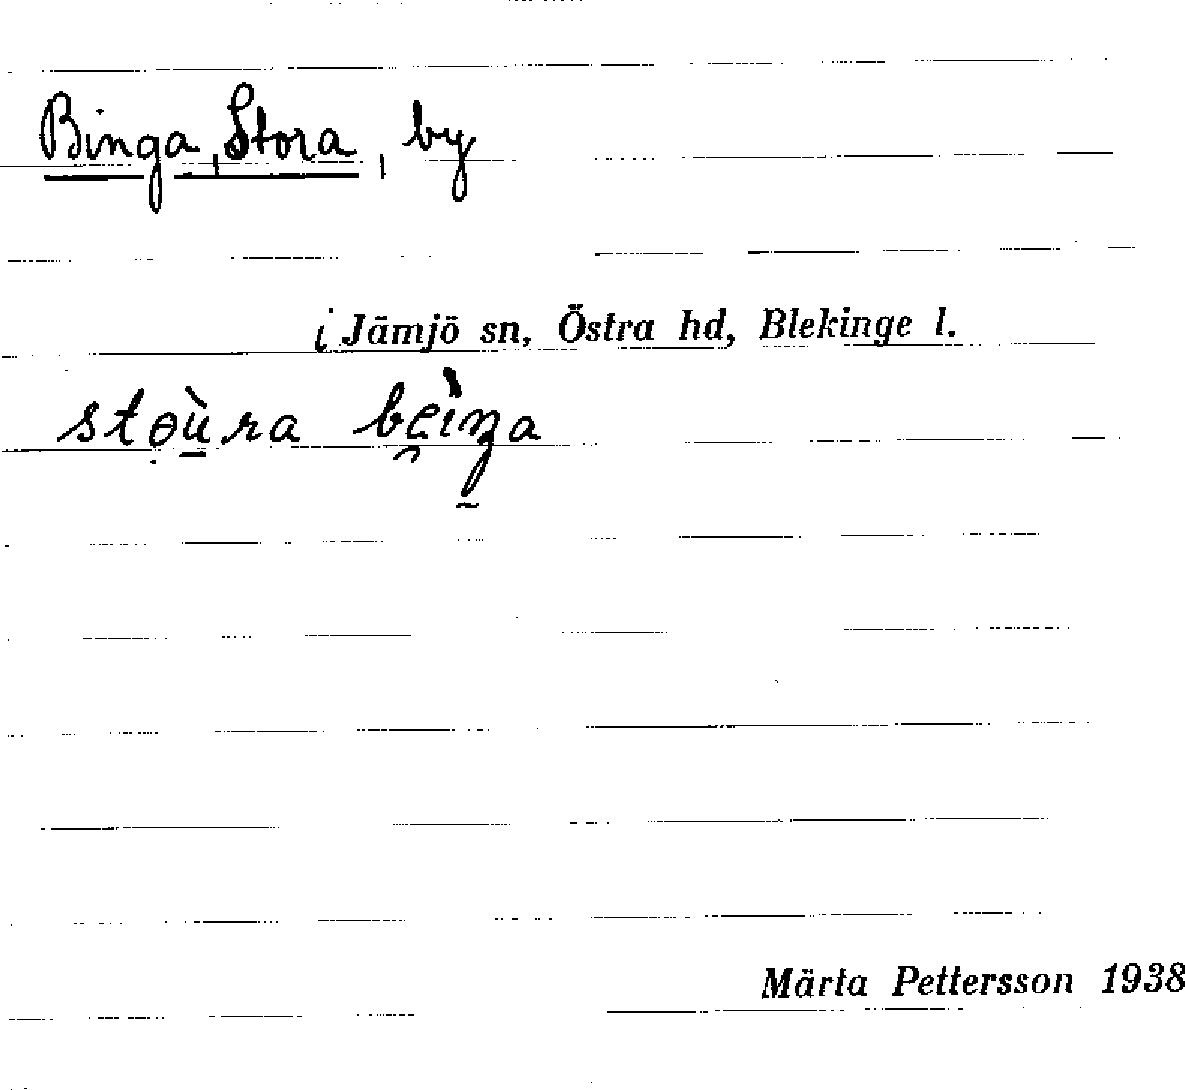 Binga, Stora, by
i Jämjö sn, Östra hd, Blekinge l.
stọù̠ra be̯ìŋa
Märta Pettersson 1938